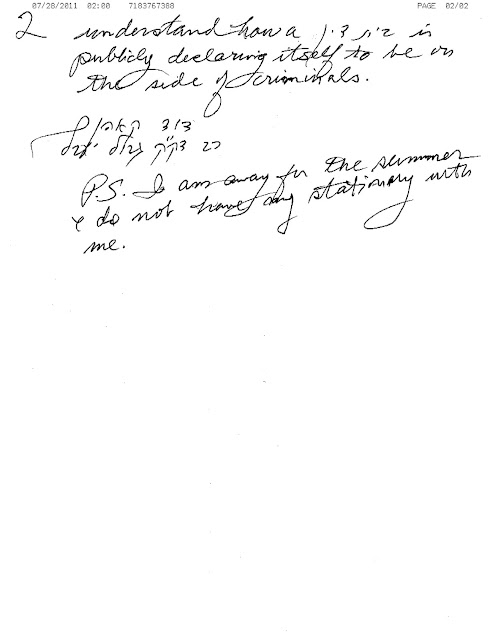 07/28/2011 02:00 7183767388 PAGE 02/02
2 understand how a בית דין is
publicly declaring itself to be on
the side of criminals.
דוד קאהן
רב דק"ק גבול יעבץ
P.S. I am away for the summer
& do not have my stationary with
me.